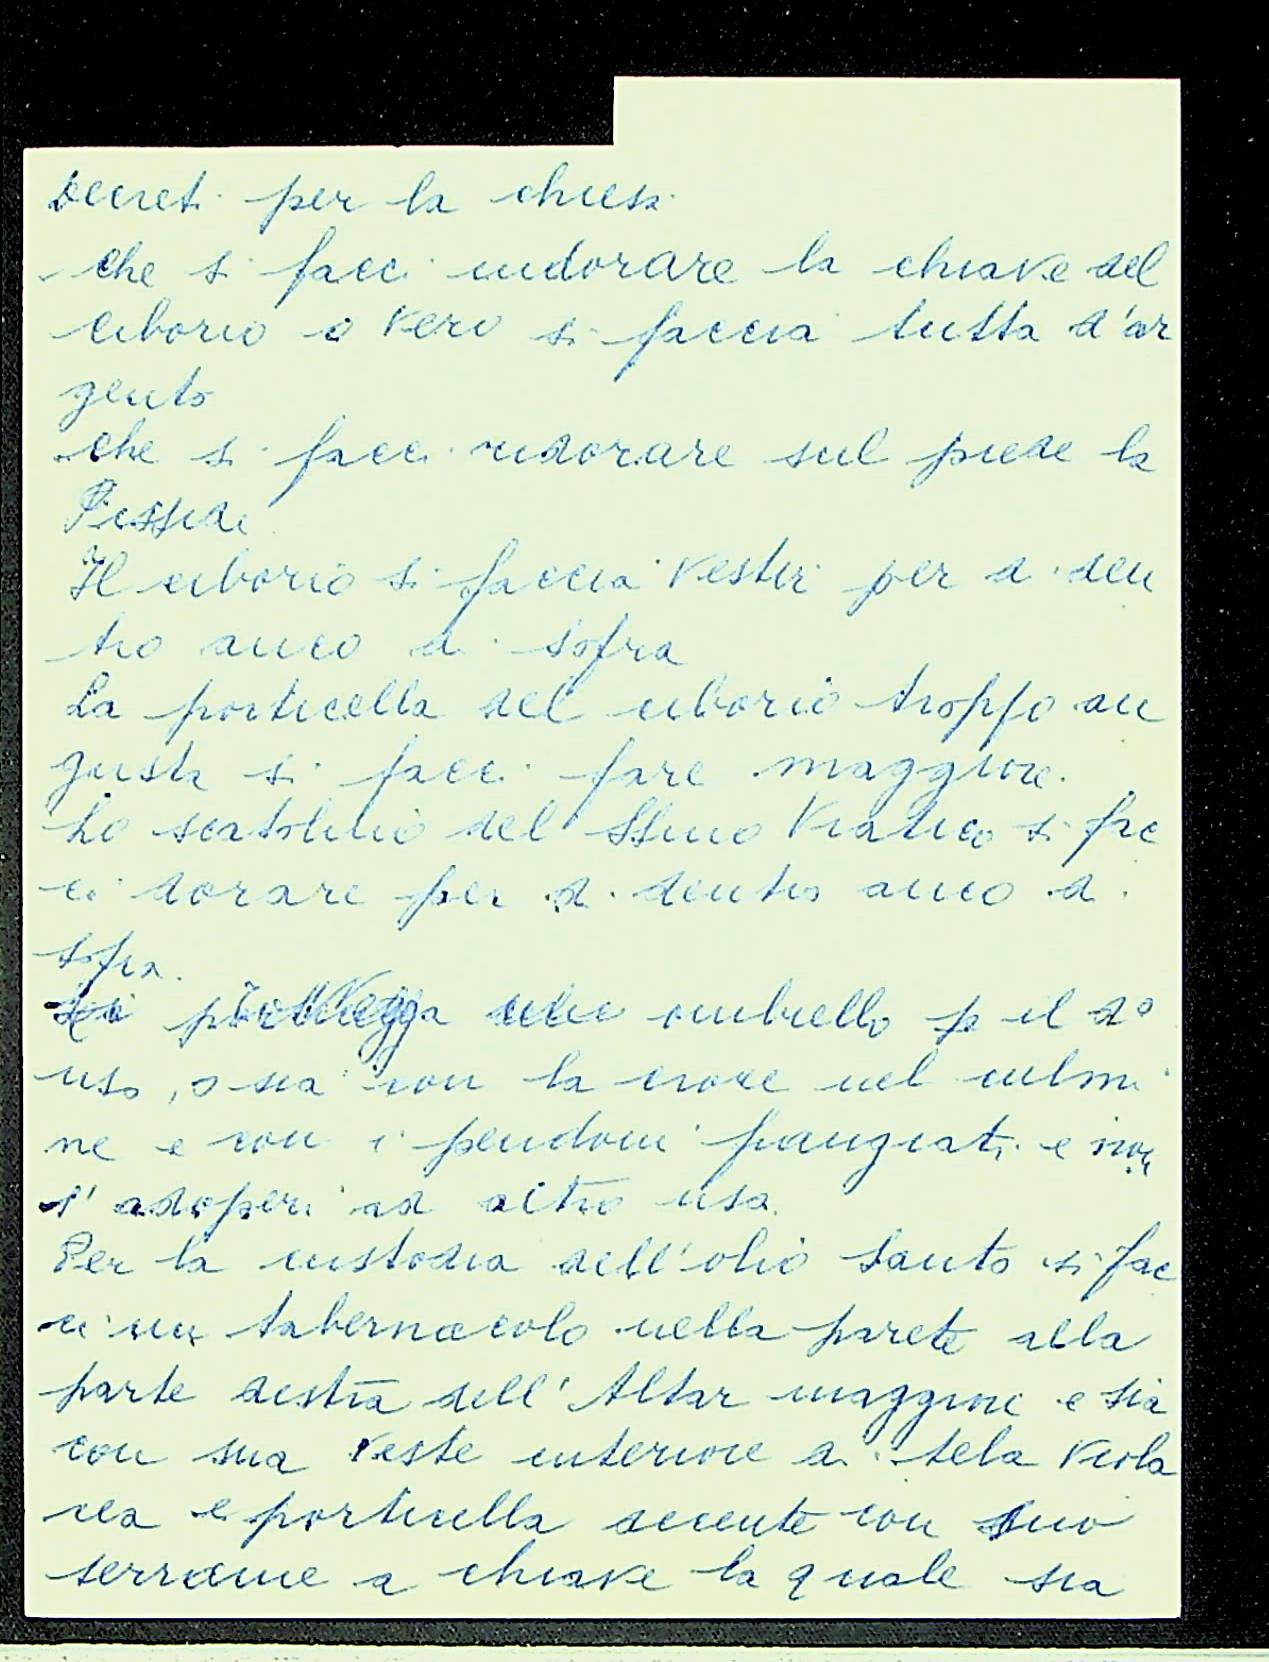 Decreti per la chiesa
che si facci indorare la chiave del
ciborio o vero si faccia tutta d'ar
gento
che si facci indorare sul piede la
Pisside
Il ciborio si faccia vestir per di den
tro anco di sopra
La porticella del ciborio troppo an
gusta si facci fare maggiore.
Lo scatolino del SSmo Viatico si fac
ci dorare per di dentro anco di
sopra.
Si provegga ombrello p il do
uso, o sia con la croce nel culmi
ne e con i pendoni frangiati e non
s'adoperi ad altro uso.
Per la custodia dell'olio Santo si fac
ci un tabernacolo nella parete alla
parte destra dell'Altar maggiore e sia
con sua veste interiore di tela viola
cea e porticella decente con suo
serrame a chiave la quale sia